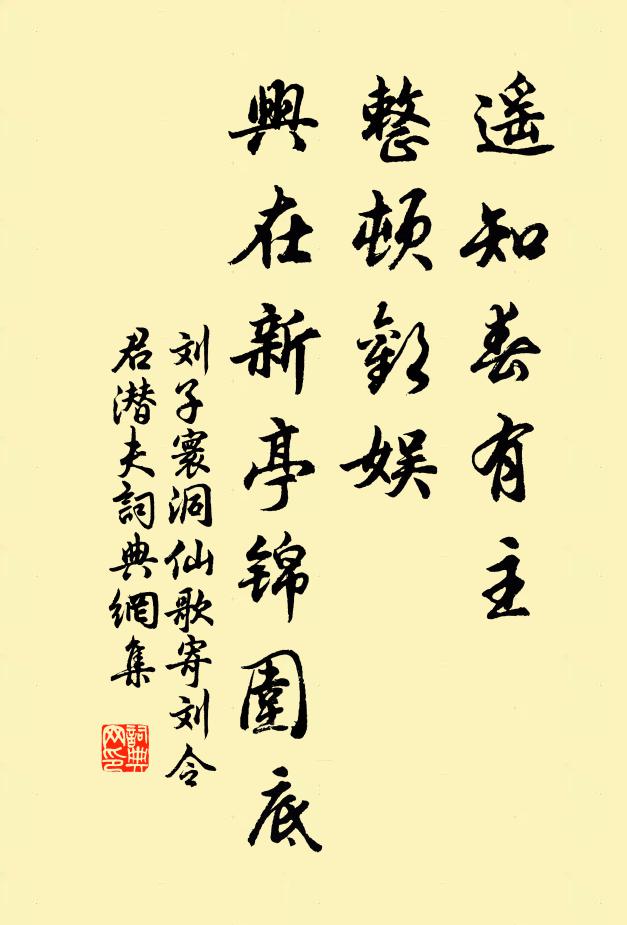 遥知春有主
整顿歡娱
興在新亭锦圍底
刘子寰洞仙歌寄刘令
君潜夫詞典網集
詞典
网印